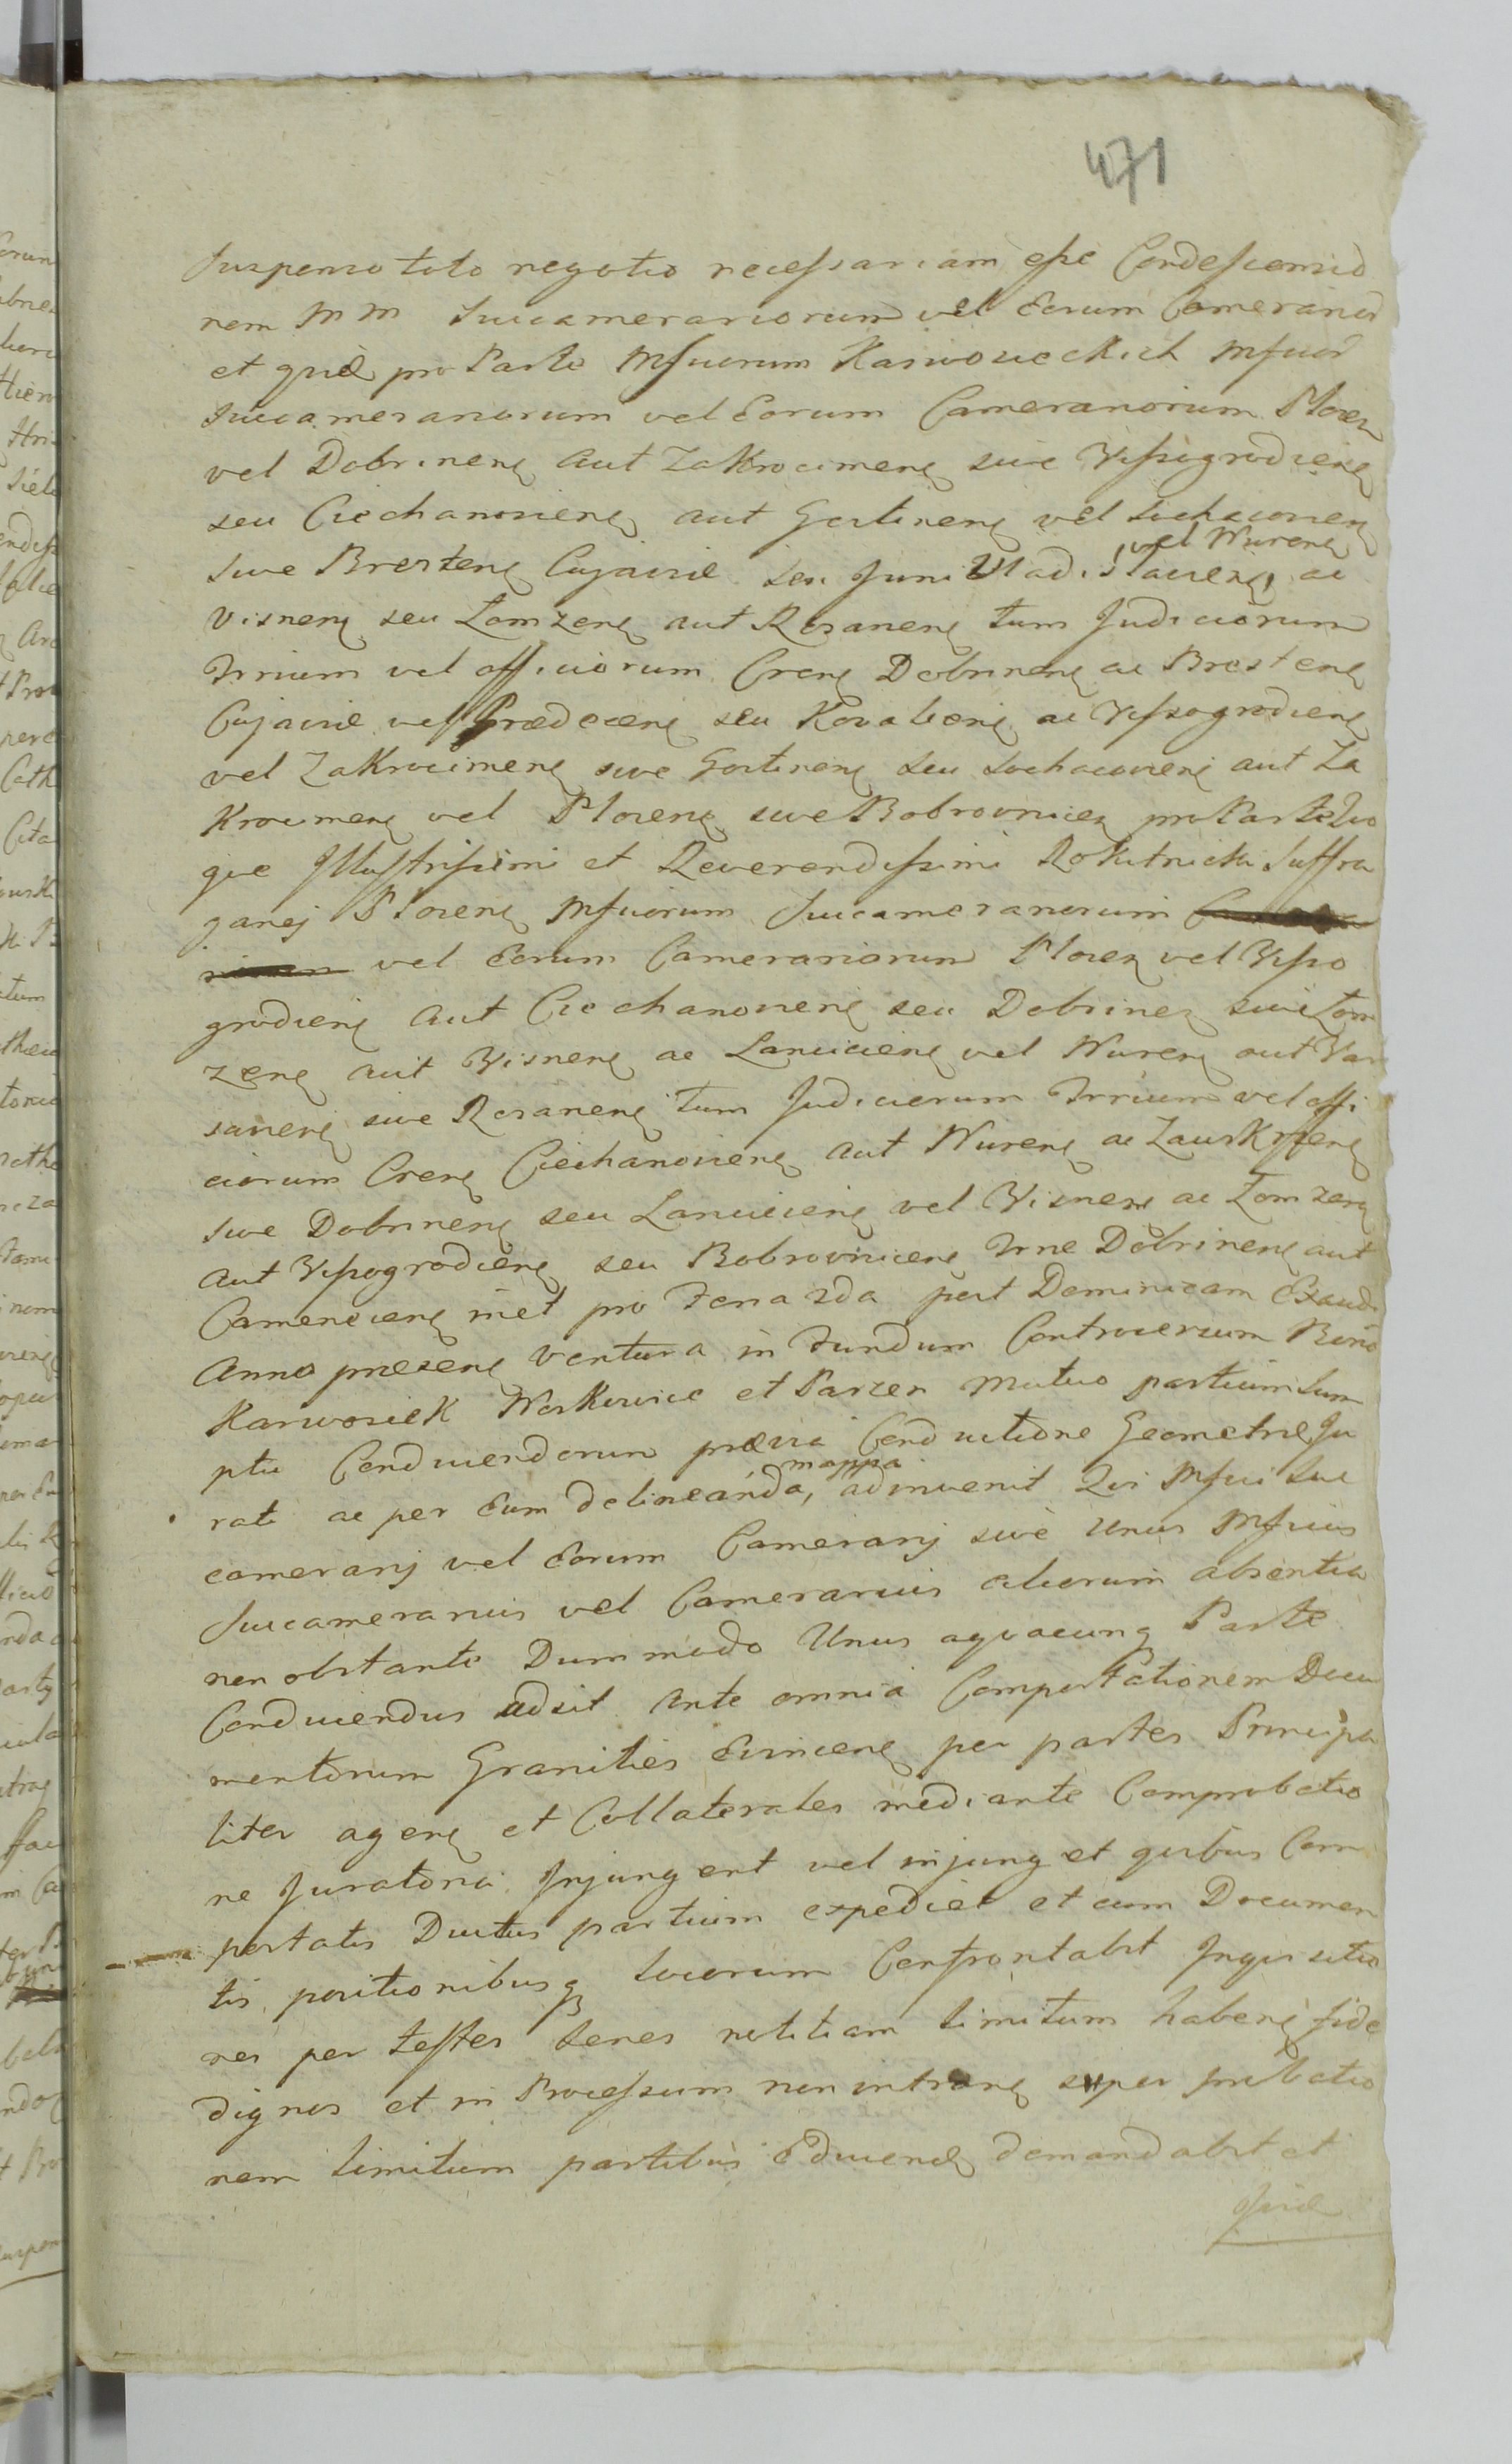 471
Suspenso toto negotio necessariam esse Condescensio
nem MM Succamerariorum vel Eorum Camerarior
et qde pro Parte Mfcorum Karwosieckich Mfcor
Succamerariorum vel Eorum Camerariorum Plocen
vel Dobrinen aut Zakrocimen sive Vissogrodien
seu Ciechanovien aut Gostinen vel Sochacovien
sive Bresten Cujaviæ seu Juni Vladislavien, vel Nuren ac
Visnen seu Lomzen aut Rosanen tum Judiciorum
Trrium vel officiorum Cren Dobrinen ac Bresten
Cujaviæ vel Prædecen seu Kovalien ac Vissogrodien
vel Zakrocimen sive Gostinen seu Sochacovien aut Za
krocimen vel Plocen sive Bobrovnicen pro Parte Quo
que Illustrissimi et Reverendissimi Rokitnicki Suffra
ganej Plocen Mfcorum Succamerariorum
vel Eorum Camerariorum Plocen vel Visso
grodien aut Ciechanovien seu Dobrinen sive Lom
zen aut Visnen ac Lancicien vel Nuren aut Var
savien sive Rosanen tum Judiciorum Trrium vel offi
ciorum Cren Ciechanovien aut Nuren ac Zauskrzen
sive Dobrinen seu Lancicien vel Visnen ac Lomzen
aut Vissogrodien seu Bobrovnicen Trrне Dobrinen aut
Camenecen met pro Feria 2da post Dominicam Exaudi
Anno præsen ventura in Fundum Controversum Bono
Karwosiek Noskowice et Parzen mutuo partium Sum
ptu Conducendorum prævia Conductione Geometræ Ju
rati ac per Eum delineanda, mappa adinvenit Qui Mfci Suc
camerarij vel Eorum Camerarij sive Unus Mfcus
Succamerarius vel Camerarius aliorum absentia
non obstante Dummodo Unus aqvacunq Parte
Conducendus adsit Ante omnia Comportationem Docu
mentorum Granities Evincen per partes Principa
liter agen et Collaterales mediante Comprobatio
ne Juratoria Injungent vel injunget quibus Com
portatis Ductus partium expediet et cum Documen
tis positionibusq locorum Confrontabit Inquisitio
nes per testes Senes notitiam limitum haben fide
dignos et in Processum non intran super probatio
nem limitum partibus Educen demandabit et